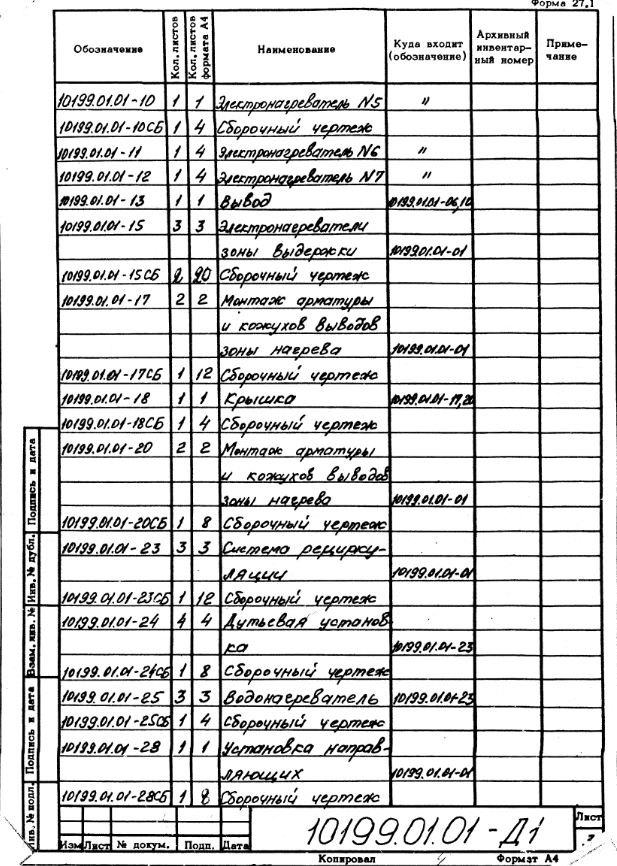 Форма 27.1
Обозначение Кол. листов Кол. листов формата А4 Наименование Куда входит (обозначение) Архивный инвентар-ный номер Приме-чание
10199.01.01-10 1 1 Электронагреватель N5 "
10199.01.01-10СБ 1 4 Сборочный чертеж
10199.01.01-11 1 4 Электронагреватель N6 "
10199.01.01-12 1 4 Электронагреватель N7 "
10199.01.01-13 1 1 Вывод 10199.01.01-06,10
10199.01.01-15 3 3 Электронагреватели
зоны выдержки 10199.01.01-01
10199.01.01-15СБ 2 20 Сборочный чертеж
10199.01.01-17 2 2 Монтаж арматуры
и кожухов выводов
зоны нагрева 10199.01.01-01
10199.01.01-17СБ 1 12 Сборочный чертеж
10199.01.01-18 1 1 Крышка 10199.01.01-17,20
10199.01.01-18СБ 1 4 Сборочный чертеж
10199.01.01-20 2 2 Монтаж арматуры
и кожухов выводов
зоны нагрева 10199.01.01-01
10199.01.01-20СБ 1 8 Сборочный чертеж
10199.01.01-23 3 3 Система рецирку-
ляции 10199.01.01-01
10199.01.01-23СБ 1 12 Сборочный чертеж
10199.01.01-24 4 4 Дутьевая установ-
ка 10199.01.01-23
10199.01.01-24СБ 1 8 Сборочный чертеж
10199.01.01-25 3 3 Водонагреватель 10199.01.01-23
10199.01.01-25СБ 1 4 Сборочный чертеж
10199.01.01-28 1 1 Установка направ-
ляющих 10199.01.01-01
10199.01.01-28СБ 1 8 Сборочный чертеж
Инв. № подл. Подпись и дата Взам. инв. № Инв. № дубл. Подпись и дата
Изм Лист № докум. Подп. Дата
10199.01.01-Д1
Лист
7
Копировал Формат А4